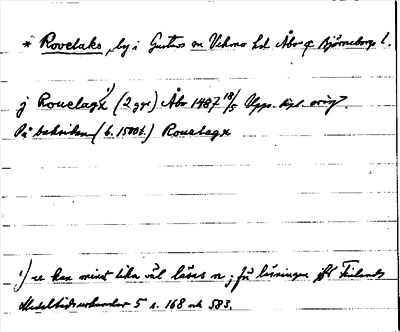 * Rovelaks, by i Gustavs sn Vehmo hd Åbo o Björneborgs l.
j Rouelagx¹) (2 ggr) Åbo 1487 18/5 Upps. dipl. orig.
På baksidan (b. 1500t.) Rouelagx
¹) u kan minst lika väl läsas n; jfr läsningen ift Finlands
Medeltidsurkunder 5 s. 168 och 583.